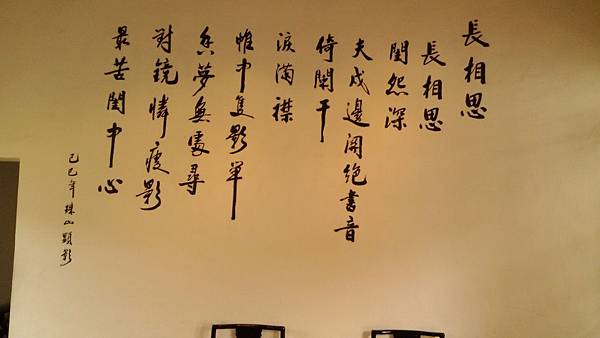 長相思
長相思
閨怨深
夫戍邊關絕書音
倚闌干
淚滿襟
帷中隻影單
夢無處尋
對鏡憐瘦影
最苦閨中心
己巳年珠山顯影